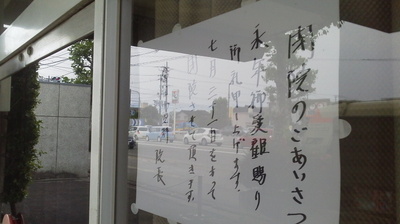 閉院のごあいさつ
永年御愛顧賜り
御礼申し上げます
七月三十一日をもって
閉院させて頂きます。
院長